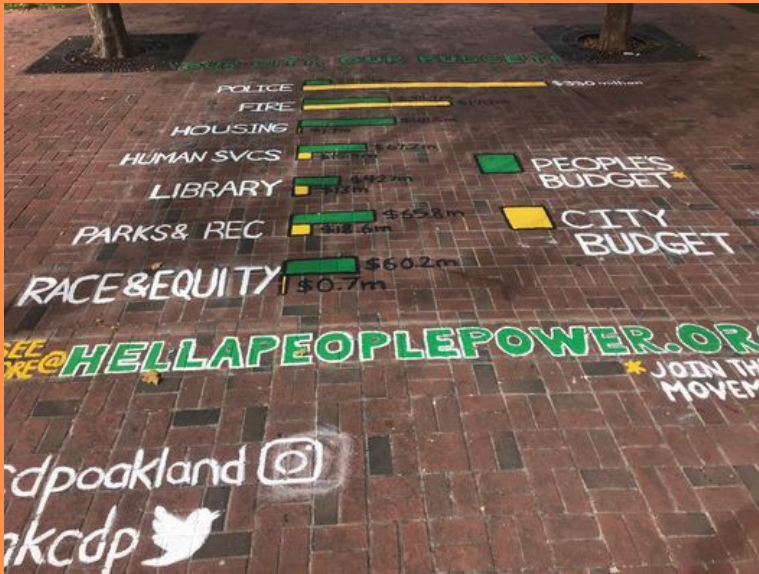 OUR CITY, OUR BUDGET!
POLICE $330 million
FIRE
HOUSING
HUMAN SVCS $67.2m
LIBRARY
$13m
PARKS & REC $65.8m
$18.6m
RACE & EQUITY $60.2m
$0.7m
PEOPLE'S
BUDGET*
CITY
BUDGET
SEE
@HELLAPEOPLEPOWER.OR
*JOIN TH
MOVEM
cdpoakland
kcdp